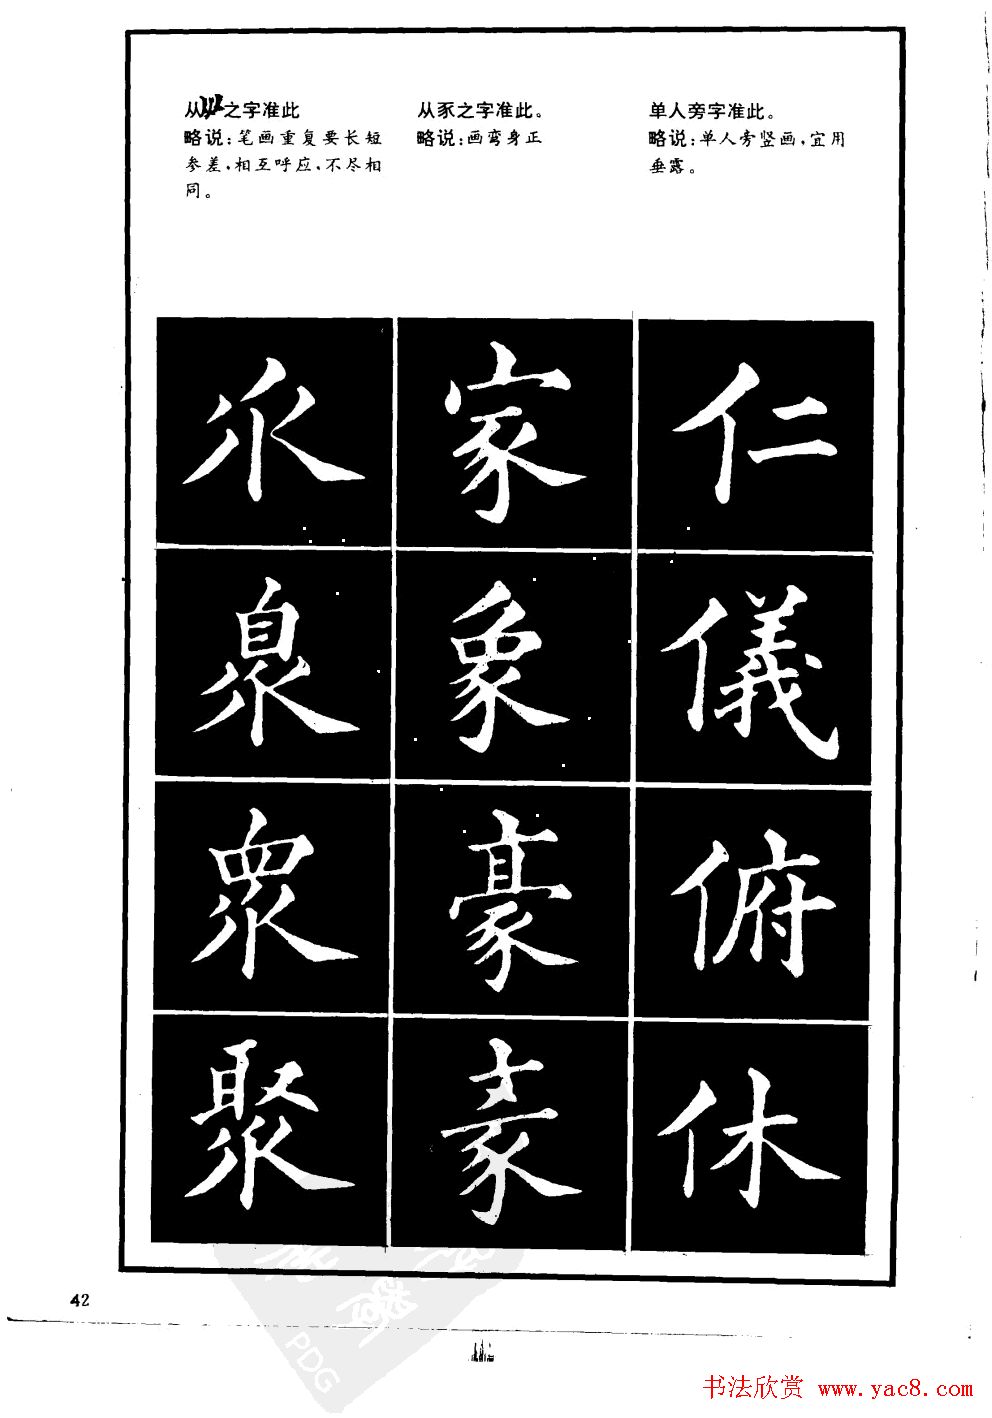 从之字准此
略说：笔画重复要长短
参差，相互呼应，不尽相
同。
从豕之字准此。
略说：画弯身正
单人旁字准此。
略说：单人旁竖画，宜用
垂露。
乑 家 仁
臮 象 儀
眾 豪 俯
聚 休
42
PDG
书法欣赏 www.yac8.com